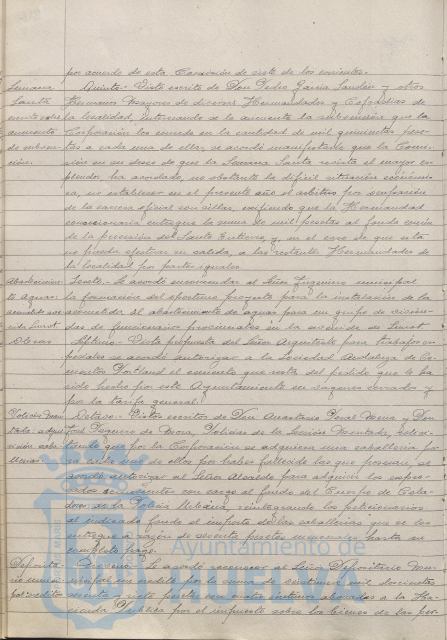 por acuerdo de esta Comisión de siete de los corrientes.
Semana Santa
Quinto - Visto escrito de Don Pedro García Sendín y otros
Hermanos Mayores de diversas Hermandades y Cofradías de
la localidad, interesando se les aumente la subvención que la
aumento
Corporación les concede en la cantidad de mil quinientas pese-
de subven-
tas a cada una de ellas, se acordó manifestarles que la Comi-
ción.
sión en su deseo de que la Semana Santa revista el mayor es-
plendor, ha acordado, no obstante la difícil situación económi-
ca, no establecer en el presente año el arbitrio por ocupación
de la carrera oficial con sillas, exigiendo que la Hermandad
concesionaria entregue la suma de mil pesetas al fondo
de la procesión del Santo Entierro y, en el caso de que esta
no pueda efectuar su salida, a las restantes Hermandades de
la localidad por partes iguales.
Abastecimien-
to aguas
Sexto - Se acordó encomendar al Señor Ingeniero municipal
la formación del oportuno proyecto para la instalación de la
acometida al abastecimiento de aguas para un grupo de vivien-
das de funcionarios provinciales en la avenida de
Obras
Séptimo - Vista propuesta del Señor Arquitecto para trabajos es-
peciales se acordó autorizar a la Sociedad Andaluza de Ce-
mentos Portland el cemento que resta del pedido que le ha
sido hecho por este Ayuntamiento en vagones cerrados y
por la tarifa general.
Policía Mon-
tada
Octavo - Vistos escritos de Don Anastasio
Policías de la Sección Montada, solici-
tando que por la Corporación se adquiera una caballería pa-
ra cada uno de ellos por haber fallecido las que poseían, se
acordó autorizar al Señor Alcalde para adquirir los expre-
sados semovientes con cargo al fondo del Cuerpo de
de la Policía Urbana, reintegrando los peticionarios
al indicado fondo el importe de las caballerías que se les
entregue a razón de setenta pesetas mensuales hasta su
completo pago.
Depósito
Noveno - Se acordó reconocer al Señor Depositario Mu-
nicipal un crédito por la suma de
siete pesetas con cuatro céntimos abonados a la Ha-
cienda Pública por el impuesto sobre los bienes de las per-
Ayuntamiento de